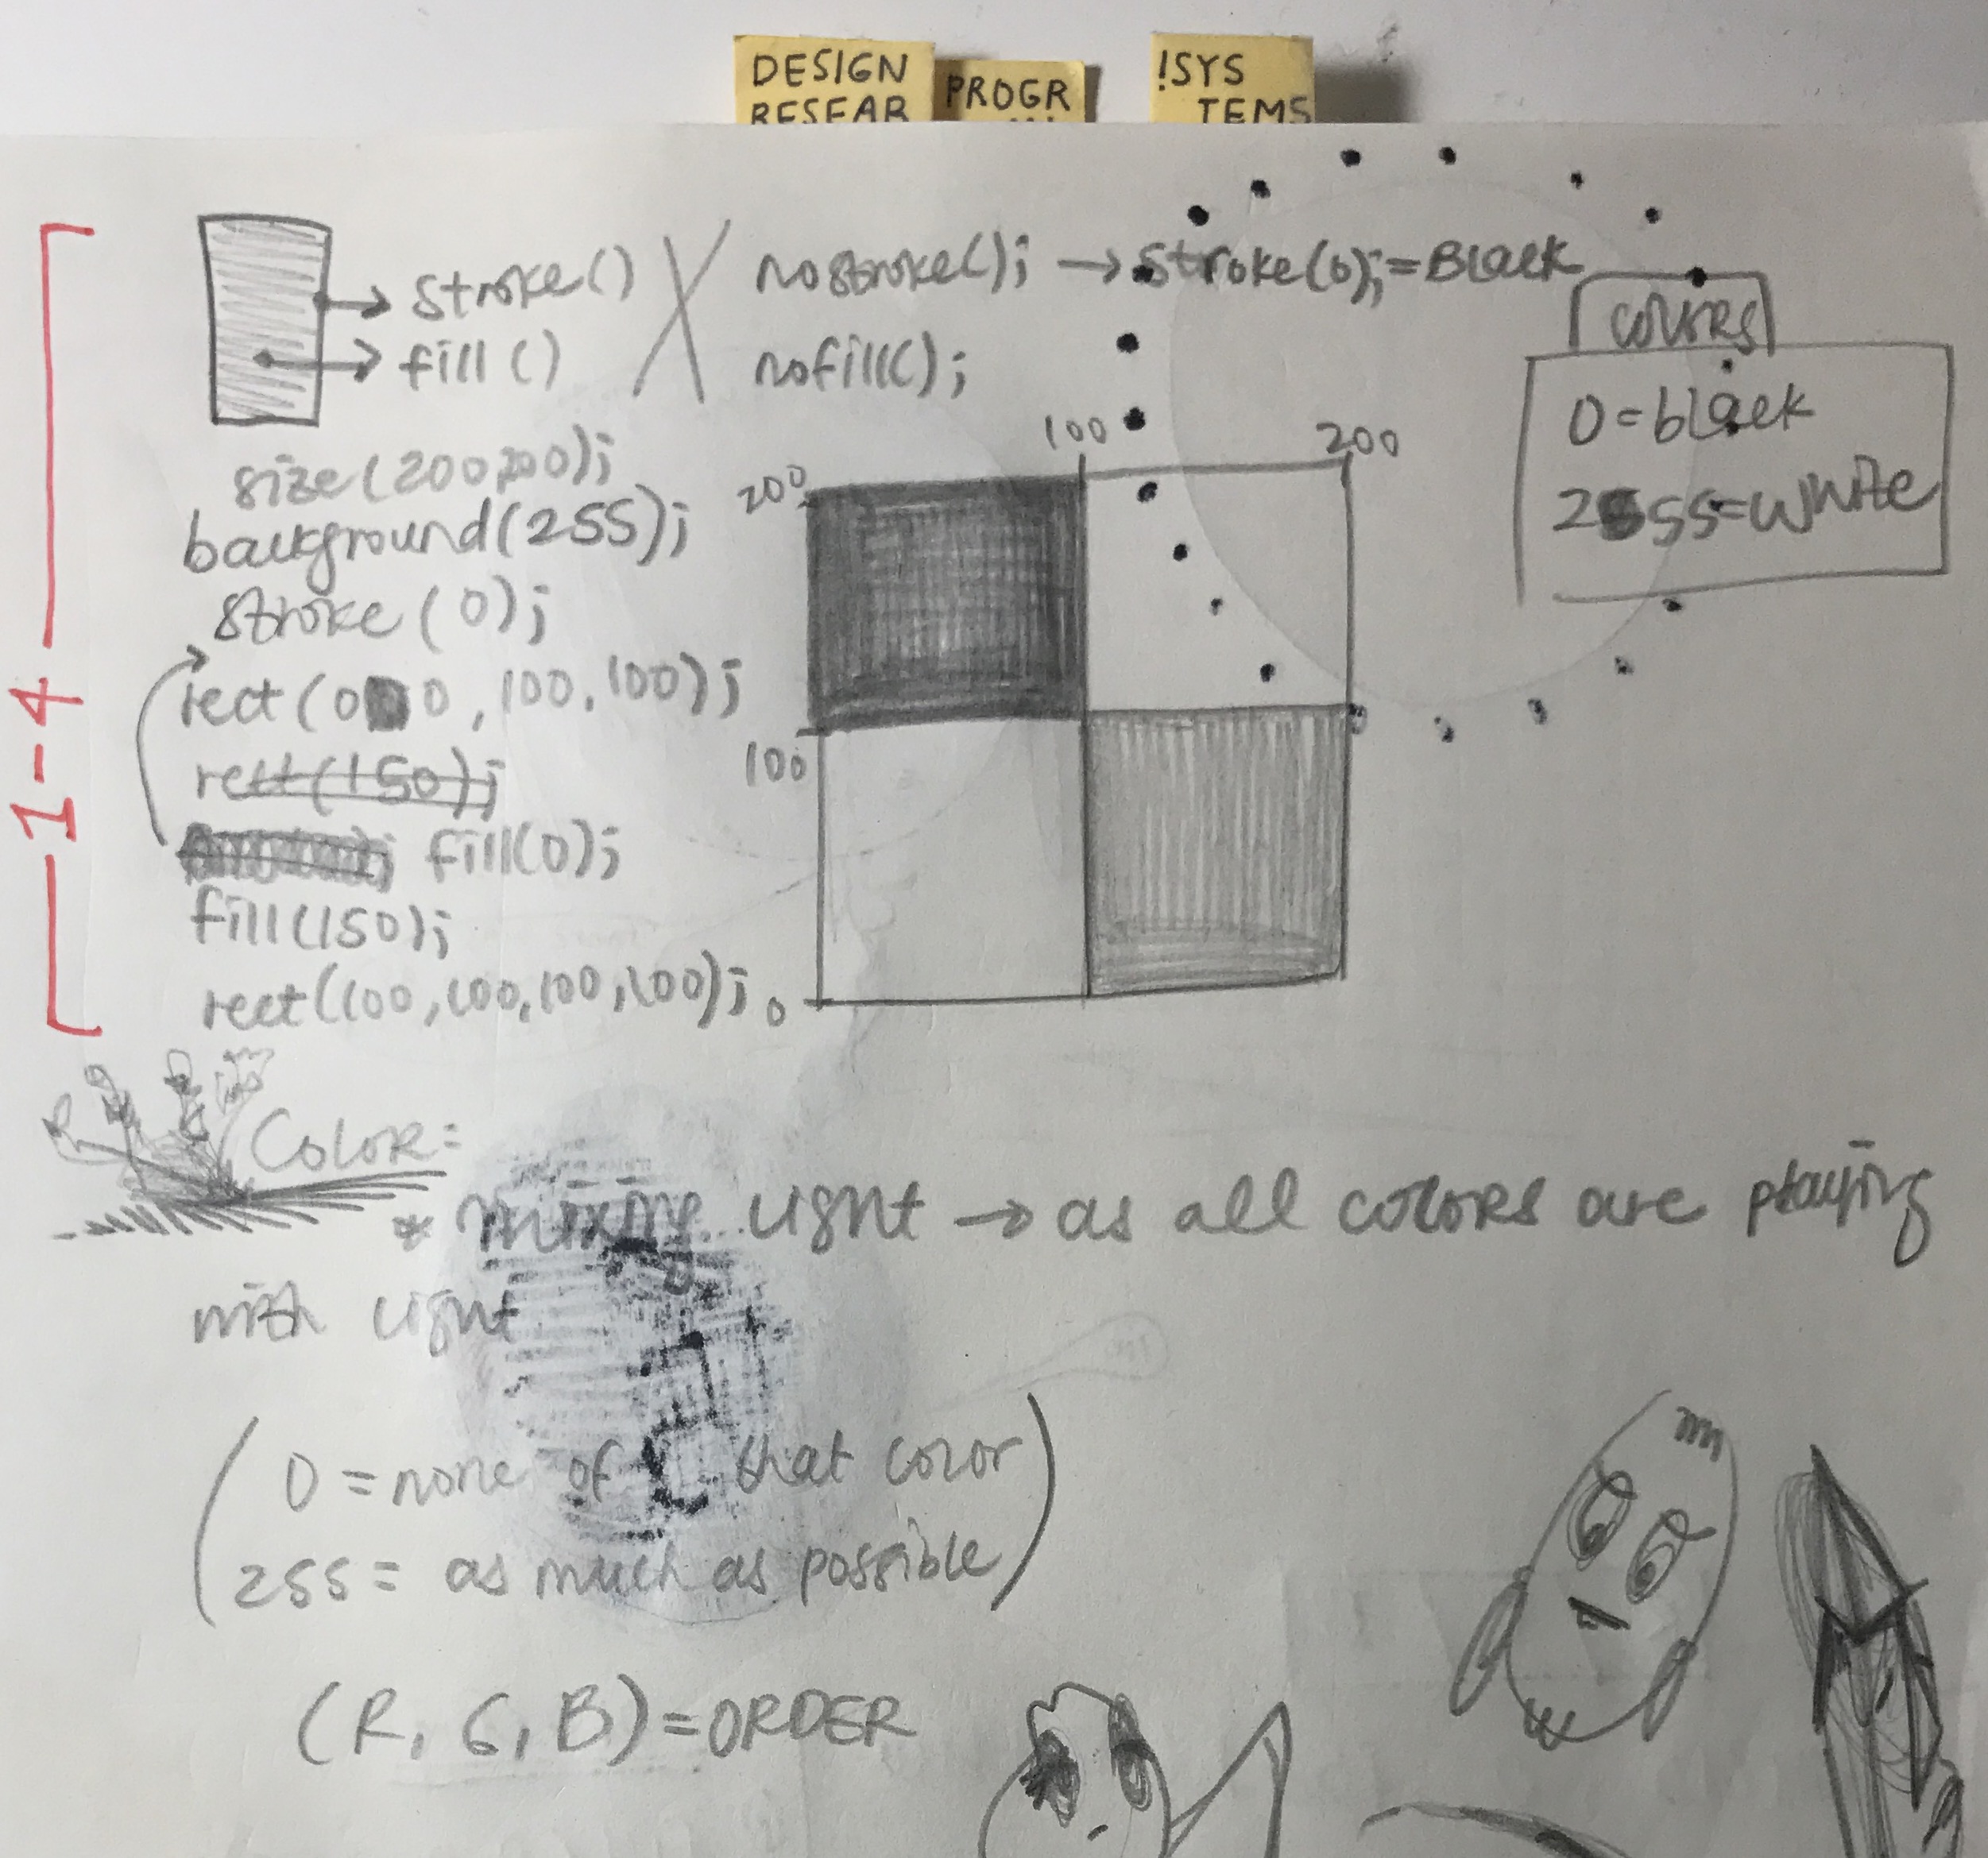 DESIGN
RESEAR
PROGR
!SYS
TEMS
1-4
stroke()
fill()
nostroke(); → stroke(0); = Black
nofill();
COLORS
0 = black
255 = white
size(200,200);
background(255);
stroke(0);
rect(0 0, 100, 100);
rect(150);
fill(0);
fill(150);
rect(100,100,100,100);
100
200
200
100
0
COLOR:
* mixing light → as all colors are playing
with light
(0 = none of that color
255 = as much as possible)
(R, G, B) = ORDER